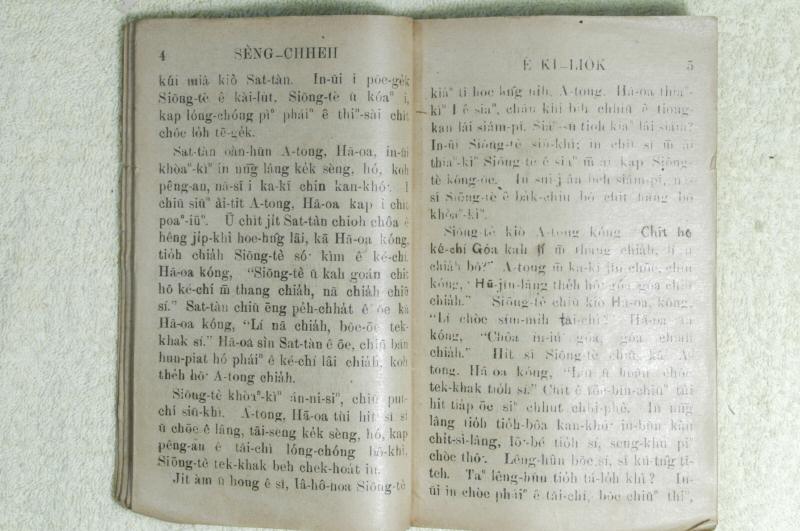 4 SÈNG-CHHEH
kúi miâ kiò Sat-tàn. In-ūi i pōe-ge̍k
Siōng-tè ê kài-lu̍t, Siōng-tè ū kóaⁿ i,
kap lóng-chóng pìⁿ pháiⁿ ê thiⁿ-sài chit
chóe lo̍h tē-ge̍k.
Sat-tàn oàn-hūn A-tong, Hā-oa, in-ūi
khòaⁿ-kìⁿ in nn̄g lâng ke̍k sèng, hó, koh
pêng-an, nā-sī i ka-kī chin kan-khó͘. I
chiū siūⁿ ài-tit A-tong, Hā-oa kap i chit
poaⁿ-iūⁿ. Ū chi̍t ji̍t Sat-tàn chioh chôa ê
hêng ji̍p-khì hoe-hn̂g lāi, kā Hā-oa kóng,
tio̍h chia̍h Siōng-tè só͘ kìm ê ké-chí.
Hā-oa kóng, “Siōng-tè ū kah goán chit
hō ké-chí m̄ thang chia̍h, nā chia̍h chiū
sí.” Sat-tàn chiū ēng pe̍h-chha̍t ê ōe kā
Hā-oa kóng, “Lí nā chia̍h, bōe-ōe tek-
khak sí.” Hā-oa sìn Sat-tàn ê ōe, chiū bán
hun-piat hó pháiⁿ ê ké-chí lâi chia̍h, koh
the̍h hō͘ A-tong chia̍h.
Siōng-tè khòaⁿ-kìⁿ án-ni-siⁿ, chiū put-
chí siū-khì. A-tong, Hā-oa tùi hit sî sī
ū chōe ê lâng, tāi-seng ke̍k sèng, hó, kap
pêng-an ê tāi-chì lóng-chóng bô-khì,
Siōng-tè tek-khak beh chek-hoa̍t in.
Ji̍t àm ū hong ê sî, Iâ-hô-hoa Siōng-tè
Ê KÌ-LIO̍K 5
kiâⁿ tī hoe hn̂g nih. A-tong, Hā-oa thiaⁿ-
kìⁿ I ê siaⁿ, cháu khì bih chhiū ê tiong-
kan lâi siám-pī.
In-ūi Siōng-tè siū-khì; in chit sî m̄ ài
thiaⁿ-kìⁿ Siōng-tè ê siaⁿ m̄ ài kap Siōng-
tè kóng-ōe. In sui-jiân beh siám-pī, nā-
sī Siōng-tè ê ba̍k-chiu bô chi̍t hāng bô
khòaⁿ-kìⁿ.
Siōng-tè kiò A-tong kóng Chit hō
ké-chí Góa kah lí m̄ thang chia̍h, lí ū
chia̍h bô?” A-tong m̄ ka-kī jīn chōe, chiū
kóng, “Hū-jîn-lâng the̍h hō͘ góa, góa chiū
chia̍h.” Siōng-tè chiū kiò Hā-oa, kóng,
“Lí chòe sím-mi̍h tāi-chì?” Hā-oa
kóng, “Chôa góa, góa chiah
chia̍h.” Hit sî Siōng-tè chiū kā A-
tong, Hā-oa kóng,
tek-khak tio̍h sí.” Chit ê
hit tia̍p ōe siⁿ chhut In nn̄g
lâng tio̍h tio̍h-bôa kan-khó͘ in-būn kàu
chi̍t-sì-lâng, lō͘-bé tio̍h sí, seng-khu pìⁿ
chòe thô͘. Lêng-hûn bōe sí, sī kú-tn̂g tī-
teh. Taⁿ lêng-hûn tio̍h tá-lo̍h khì? In-
ūi in chòe pháiⁿ ê tāi-chì, bōe chiūⁿ thiⁿ,